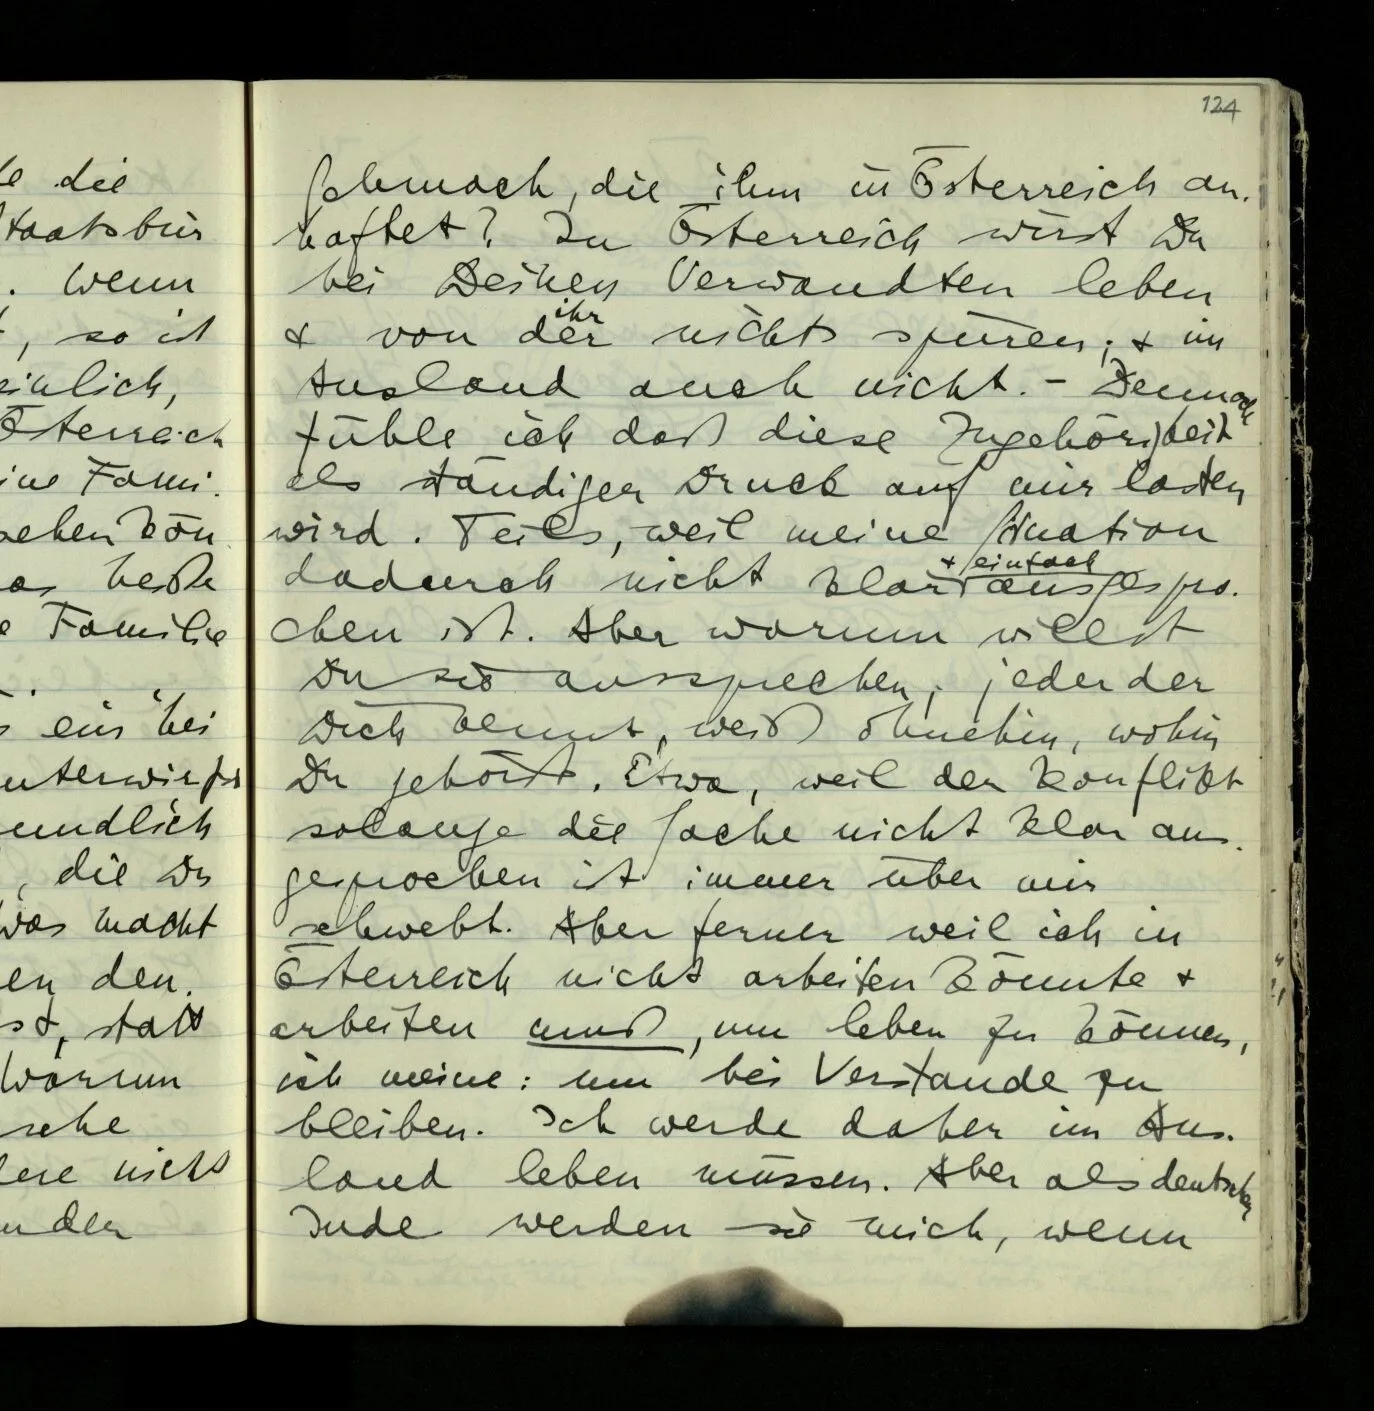 te die
Staatsbür
. Wenn
, so ist
einlich,
Österreich
ine Fami-
sehen kön
as beste
e Familie
s ein bei
unterwirfst
eundlich
, die Du
Was macht
en den.
ist, statt
Warum
sche
dere nicht
nder
124
Schmach, die ihm in Österreich an-
haftet? In Österreich wirst Du
bei Deinen Verwandten leben
ihr
& von der nichts spüren; & im
Ausland auch nicht. – Dennoch
fühle ich daß diese Zugehörigkeit
als ständiger Druck auf mir lasten
wird. Teils, weil meine Situation
+ einfach
dadurch nicht klar ausgespro-
chen ist. Aber warum willst
Du sie aussprechen; jeder der
Dich kennt, weiß ohnehin, wohin
Du gehörst. Etwa, weil der Konflikt
solange die Sache nicht klar aus-
gesprochen ist immer über mir
schwebt. Aber ferner weil ich in
Österreich nicht arbeiten könnte &
arbeiten muß, um leben zu können,
ich meine: um bei Verstande zu
bleiben. Ich werde daher im Aus-
land leben müssen. Aber als deutscher
Jude werden sie mich, wenn